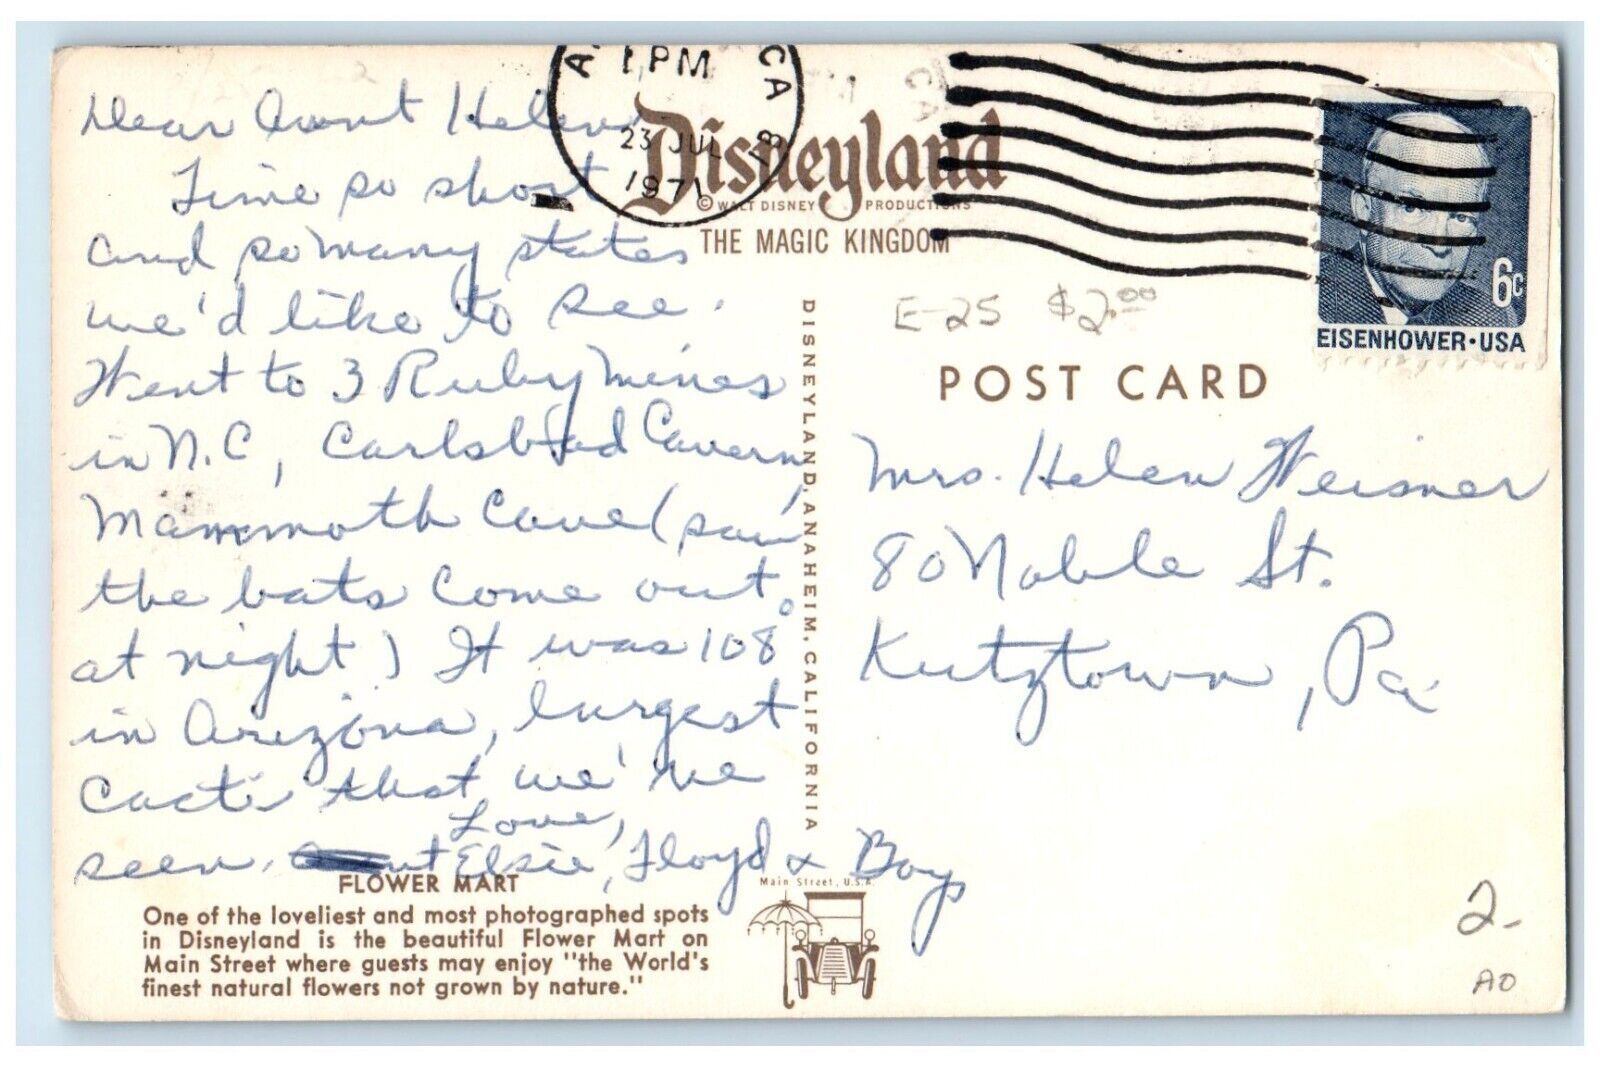 Dear Aunt Helen,
Time so short
and so many states
we'd like to see.
Went to 3 Ruby Mines
in N.C, Carlsbad Cavern,
Mammoth Cave (saw
the bats come out
at night) It was 108°
in Arizona, largest
Cacti that we've
seen.
Love,
Elsie, Floyd & Boys
FLOWER MART
One of the loveliest and most photographed spots
in Disneyland is the beautiful Flower Mart on
Main Street where guests may enjoy "the World's
finest natural flowers not grown by nature."
Main Street, U.S.A.
DISNEYLAND, ANAHEIM, CALIFORNIA
1 PM
CA
23 JUL
1971
Disneyland
© WALT DISNEY PRODUCTIONS
THE MAGIC KINGDOM
E-25 $2.00
6c
EISENHOWER·USA
POST CARD
Mrs. Helen Weisner
80 Noble St.
Kutztown, Pa
2-
AO